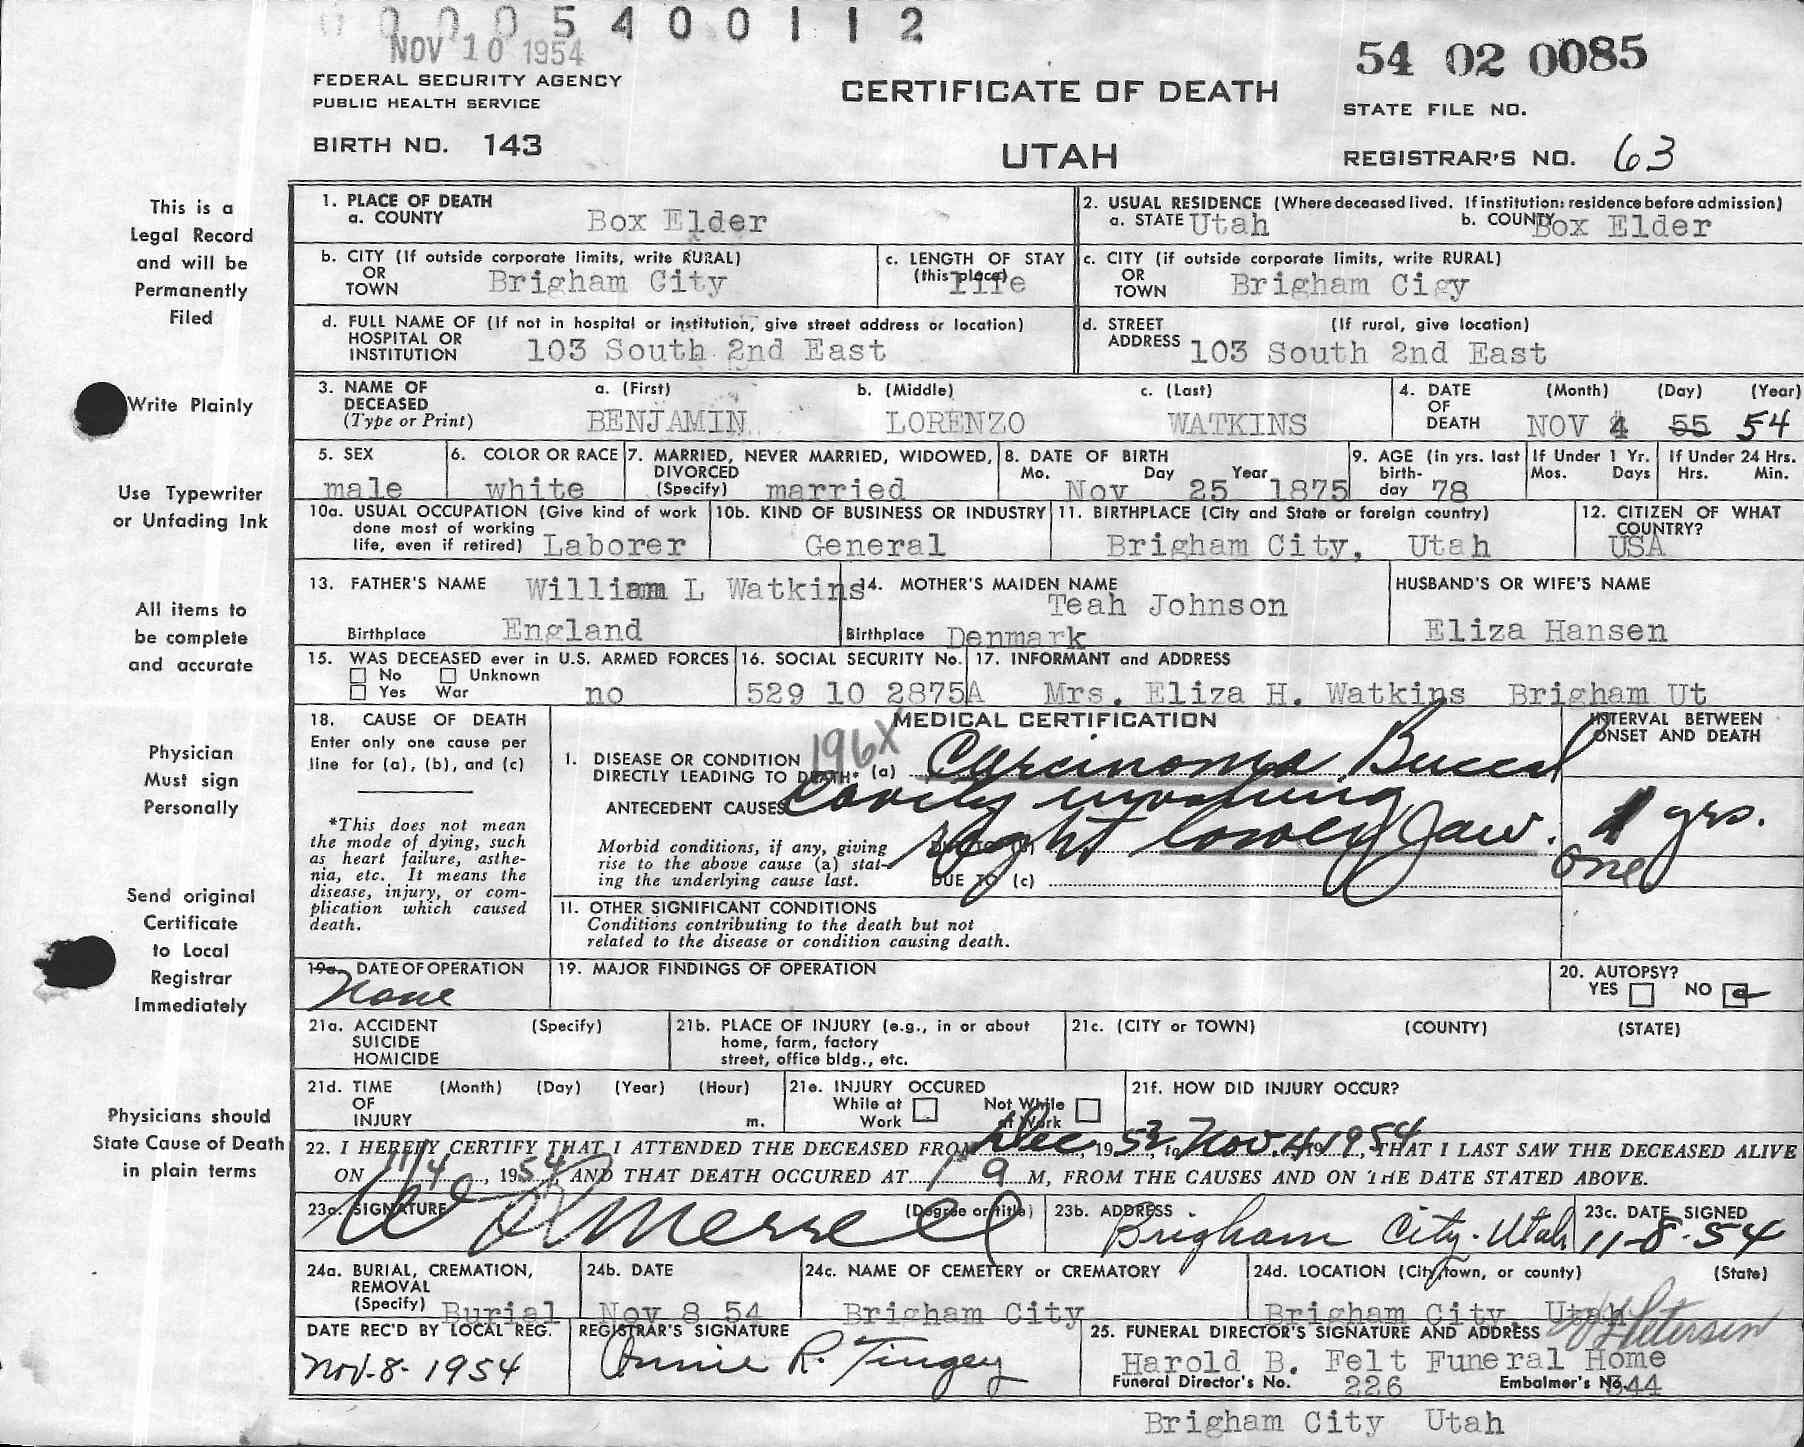 0005400112
NOV 10 1954
54 02 0085
FEDERAL SECURITY AGENCY
PUBLIC HEALTH SERVICE
CERTIFICATE OF DEATH
STATE FILE NO.
BIRTH NO. 143
UTAH
REGISTRAR'S NO. 63
This is a
Legal Record
and will be
Permanently
Filed
Write Plainly
Use Typewriter
or Unfading Ink
All items to
be complete
and accurate
Physician
Must sign
Personally
Send original
Certificate
to Local
Registrar
Immediately
Physicians should
State Cause of Death
in plain terms
1. PLACE OF DEATH
a. COUNTY Box Elder
2. USUAL RESIDENCE (Where deceased lived. If institution: residence before admission)
a. STATE Utah b. COUNTY Box Elder
b. CITY (If outside corporate limits, write RURAL)
OR
TOWN Brigham City
c. LENGTH OF STAY
(this place) life
c. CITY (if outside corporate limits, write RURAL)
OR
TOWN Brigham Cigy
d. FULL NAME OF (If not in hospital or institution, give street address or location)
HOSPITAL OR
INSTITUTION 103 South 2nd East
d. STREET (If rural, give location)
ADDRESS 103 South 2nd East
3. NAME OF a. (First) b. (Middle) c. (Last)
DECEASED
(Type or Print) BENJAMIN LORENZO WATKINS
4. DATE (Month) (Day) (Year)
OF
DEATH NOV 4 55 54
5. SEX
male
6. COLOR OR RACE
white
7. MARRIED, NEVER MARRIED, WIDOWED,
DIVORCED
(Specify) married
8. DATE OF BIRTH
Mo. Day Year
Nov 25 1875
9. AGE (in yrs. last
birth-
day 78
If Under 1 Yr.
Mos. Days
If Under 24 Hrs.
Hrs. Min.
10a. USUAL OCCUPATION (Give kind of work
done most of working
life, even if retired) Laborer
10b. KIND OF BUSINESS OR INDUSTRY
General
11. BIRTHPLACE (City and State or foreign country)
Brigham City, Utah
12. CITIZEN OF WHAT
COUNTRY?
USA
13. FATHER'S NAME William L Watkins
Birthplace England
14. MOTHER'S MAIDEN NAME
Teah Johnson
Birthplace Denmark
HUSBAND'S OR WIFE'S NAME
Eliza Hansen
15. WAS DECEASED ever in U.S. ARMED FORCES
No Unknown
Yes War no
16. SOCIAL SECURITY No.
529 10 2875A
17. INFORMANT and ADDRESS
Mrs. Eliza H. Watkins Brigham Ut
18. CAUSE OF DEATH
Enter only one cause per
line for (a), (b), and (c)
*This does not mean
the mode of dying, such
as heart failure, asthe-
nia, etc. It means the
disease, injury, or com-
plication which caused
death.
MEDICAL CERTIFICATION
INTERVAL BETWEEN
ONSET AND DEATH
196X
1. DISEASE OR CONDITION
DIRECTLY LEADING TO DEATH* (a) Carcinoma Buccal
ANTECEDENT CAUSES Cavity involving
Morbid conditions, if any, giving
rise to the above cause (a) stat-
ing the underlying cause last.
right lower Jaw.
DUE TO (c)
1 yrs.
one
11. OTHER SIGNIFICANT CONDITIONS
Conditions contributing to the death but not
related to the disease or condition causing death.
19a. DATE OF OPERATION
None
19. MAJOR FINDINGS OF OPERATION
20. AUTOPSY?
YES NO
21a. ACCIDENT (Specify)
SUICIDE
HOMICIDE
21b. PLACE OF INJURY (e.g., in or about
home, farm, factory
street, office bldg., etc.
21c. (CITY or TOWN) (COUNTY) (STATE)
21d. TIME (Month) (Day) (Year) (Hour)
OF
INJURY m.
21e. INJURY OCCURED
While at Not While
Work at Work
21f. HOW DID INJURY OCCUR?
22. I HEREBY CERTIFY THAT I ATTENDED THE DECEASED FROM Dec, 1953, to Nov. 4, 1954, THAT I LAST SAW THE DECEASED ALIVE
ON 11/4, 1954, AND THAT DEATH OCCURED AT 1 9 M, FROM THE CAUSES AND ON THE DATE STATED ABOVE.
23a. SIGNATURE (Degree or title)
Merrell
23b. ADDRESS
Brigham City. Utah
23c. DATE SIGNED
11-8-54
24a. BURIAL, CREMATION,
REMOVAL
(Specify) Burial
24b. DATE
Nov 8 54
24c. NAME OF CEMETERY or CREMATORY
Brigham City
24d. LOCATION (City, town, or county) (State)
Brigham City, Utah
DATE REC'D BY LOCAL REG.
Nov-8-1954
REGISTRAR'S SIGNATURE
Annie R. Tingey
25. FUNERAL DIRECTOR'S SIGNATURE AND ADDRESS Petersen
Harold B. Felt Funeral Home
Funeral Director's No. 226 Embalmer's No. 344
Brigham City Utah